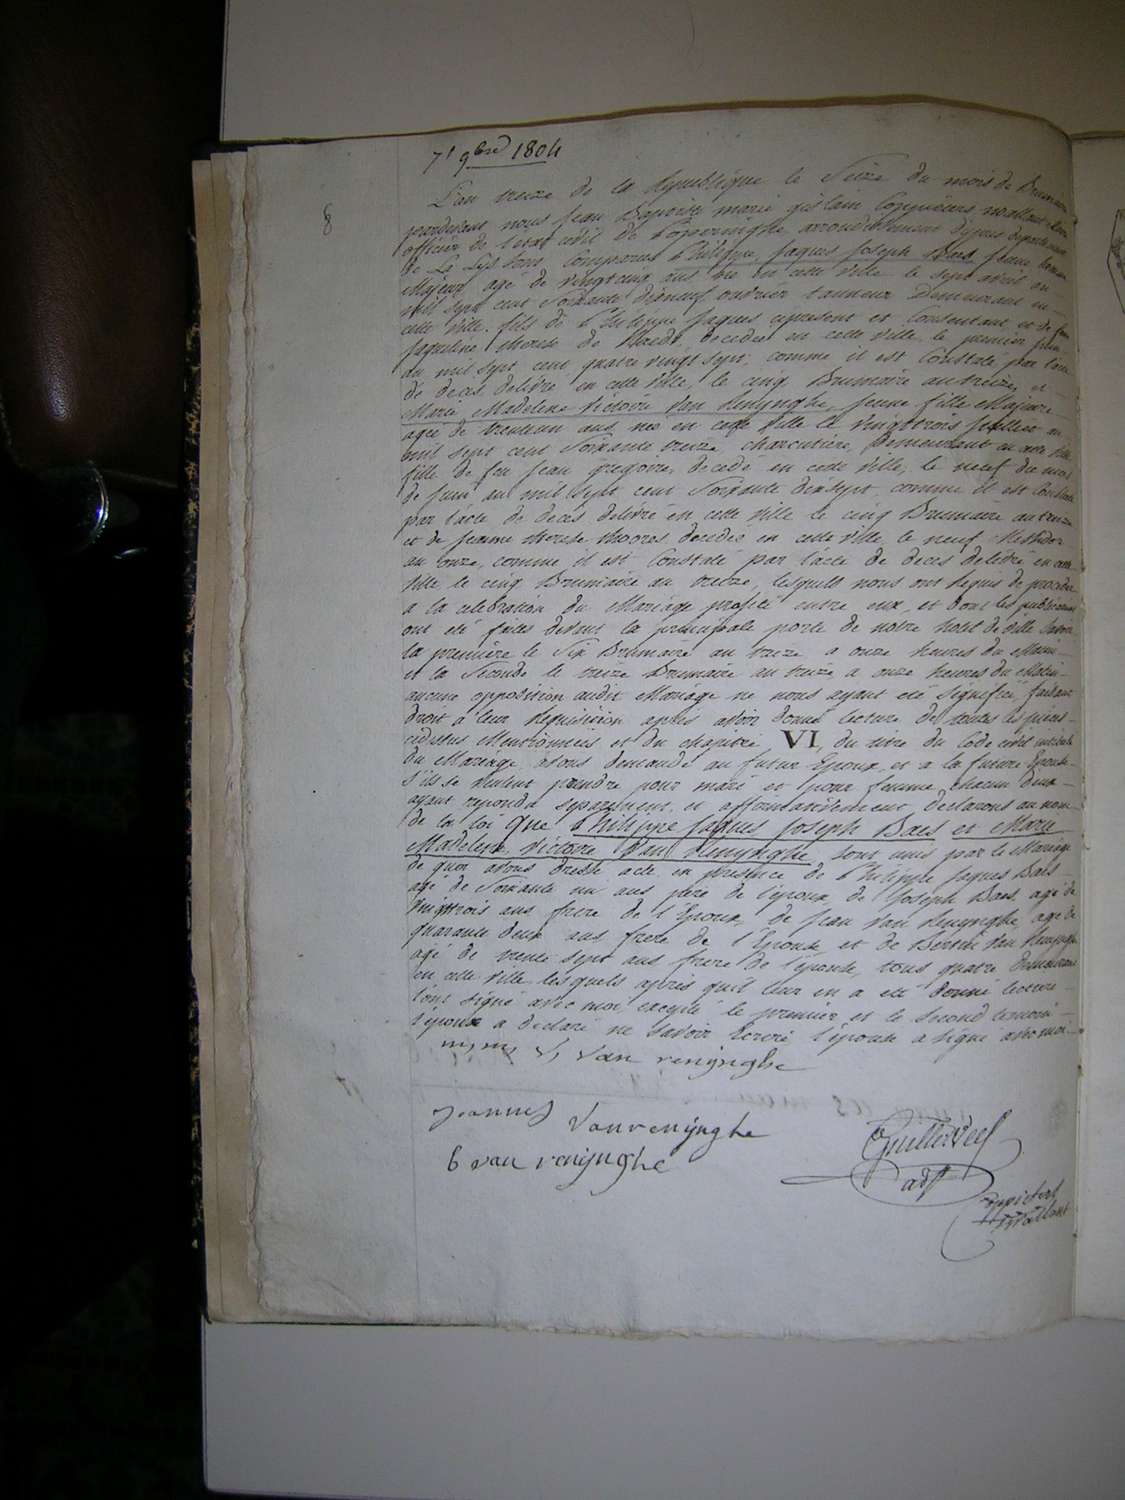 7 9bre 1804
8
L'an treize de la Republique le Seize du mois de Brumaire
pardevant nous Jean Baptiste marie gislain
officier de l'etat civil de Poperinghe, arrondissement d'ipres departement
de La Lys sont comparus Philippe Jaques Joseph Baes jeune homme
Majeur agé de vingtcinq ans né en cette ville le sept avril an
mil sept cent Soixante dixneuf ouvrier tanneur Demeurant en
cette ville. fils de Philippe Jaques cipresent et Consentant et de feue
Jaqueline therese de decedée en cette ville le premier
an mil sept cent quatre vingt sept, comme il est Constaté par l'acte
de decès delivré en cette ville, le cinq Brumaire an treize, et
Marie Madeleine Victoire Van Renynghe, jeune fille Majeure
agée de trenteun ans, née en cette ville le vingttrois Juillet an
mil sept cent Soixante treize charcutière, Demeurant en cette ville
fille de feu Jean gregoire, decedé en cette ville, le neuf du mois
de Juin an mil sept cent Soixante dixsept, comme il est Constaté
par l'acte de decès delivré en cette ville le cinq Brumaire an treize
et de Jeanne therese decedée en cette ville le neuf Messidor
an onze, comme il est Constaté par l'acte de decès delivré en cette
ville le cinq Brumaire an treize, lesquels nous ont requis de proceder
a la celebration du Mariage projeté entre eux, et dont les publications
ont été faites devant la principale porte de notre hotel de ville Savoir
la première le Six Brumaire an treize a onze heures du Matin
et la Seconde le treize Brumaire an treize a onze heures du Matin
aucune opposition audit Mariage ne nous ayant été signifiée, faisant
droit à leur requisition après avoir donné lecture de toutes les pièces
cidessus Mentionnées et du chapitre VI, du titre du Code civil intitulé
du Mariage avons demandé au futur Epoux, et a la future Epouse
s'ils se veulent prendre pour mari et pour femme chacun deux
ayant repondu separement et affirmativement declarons au nom
de la loi que Philippe Jaques Joseph Baes et Marie
Madeleine Victoire Van Renynghe sont unis par le Mariage
de quoi avons dressé acte en presence de Philippe Jaques Baes
agé de Soixante un ans père de l'epoux, de Joseph Baes agé de
vingttrois ans frere de l'Epoux de Jean Van Renynghe agé de
quarante deux ans frere de l'Epouse et de Van Renynghe
agé de trente sept ans frere de l'epouse, tous quatre Demeurant
en cette ville lesquels après quil leur en a eté donné lecture
l'ont signé avec moi excepté le premier et le Second temoin
l'epoux a declaré ne savoir Ecrire l'epouse a signé avec moi
m, m, V, van renijnghe
joannes vanrenijnghe
b van renijnghe
adjt